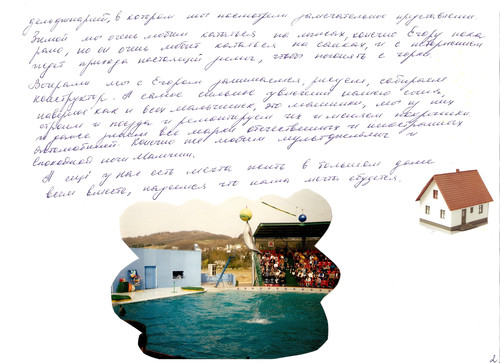 дельфинарий, в котором мы посмотрели замечательное представление.
Зимой мы очень любим кататься на лыжах, конечно Егору пока
рано, но он очень любит кататься на санках, и с нетерпением
ждёт прихода настоящей зимы, чтобы покатать с горки.
Вечерами мы с Егором занимаемся, рисуем, собираем
конструктор. А самое сильное увлечение нашего сына,
наверное как и всех мальчишек, это машинки, мы у них
строим и гаражи и ремонтируем их и меняем
и даже знаем все марки отечественных и иностранных
автомобилей. Конечно же любим мультфильмы и
спокойной ночи малыши.
А ещё у нас есть мечта жить в большом доме
всем вместе, надеемся что наша мечта сбудется.
2